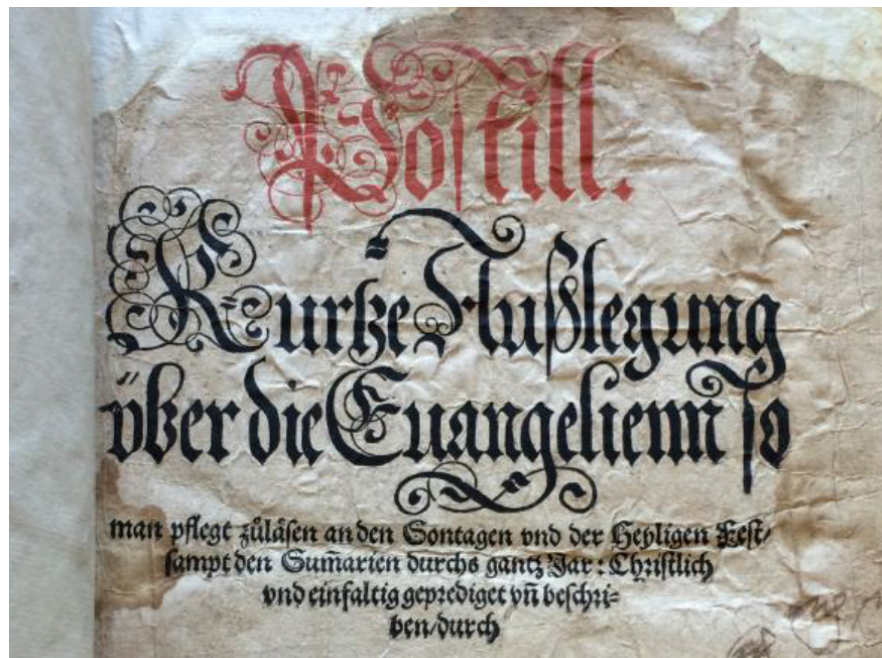 Postill.
Kurtze Außlegung
vͤber die Euangelienn so
man pflegt zůläsen an den Sontagen vnd der Heyligen Fest/
sampt den Sum̃arien durchs gantz Jar: Christlich
vnd einfaltig geprediget vñ beschri-
ben/durch